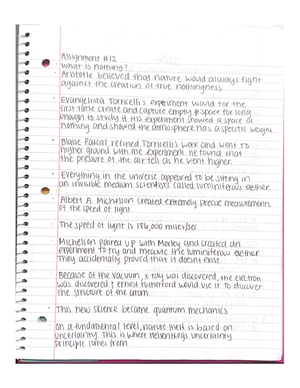 Assignment #12
What is nothing?
Aristotle believed that nature would always fight
against the creation of true nothingness.
Evangelista Torricelli's experiment would for the
first time create and capture empty space for long
enough to study it. His experiment showed a space of
nothing and showed the atmosphere has a specific weight.
Blaise Pascal refined Torricelli's work and went to
higher ground with the experiment. He found that
the pressure of the air fell as he went higher.
Everything in the universe appeared to be sitting in
an invisible medium scientists called luminiferous aether.
Albert A. Michelson created extremely precise measurements
of the speed of light.
The speed of light is 186,000 miles/sec
Michelson paired up with Morley and created an
experiment to try and measure the luminiferous aether
They accidentally proved that it doesn't exist.
Because of the vacuum, x-ray was discovered, the electron
was discovered & Ernest Rutherford would use it to discover
the structure of the atom.
This new science became quantum mechanics
On a fundamental level, nature itself is based on
uncertainty. This is where Heisenburg's uncertainty
principle comes from.